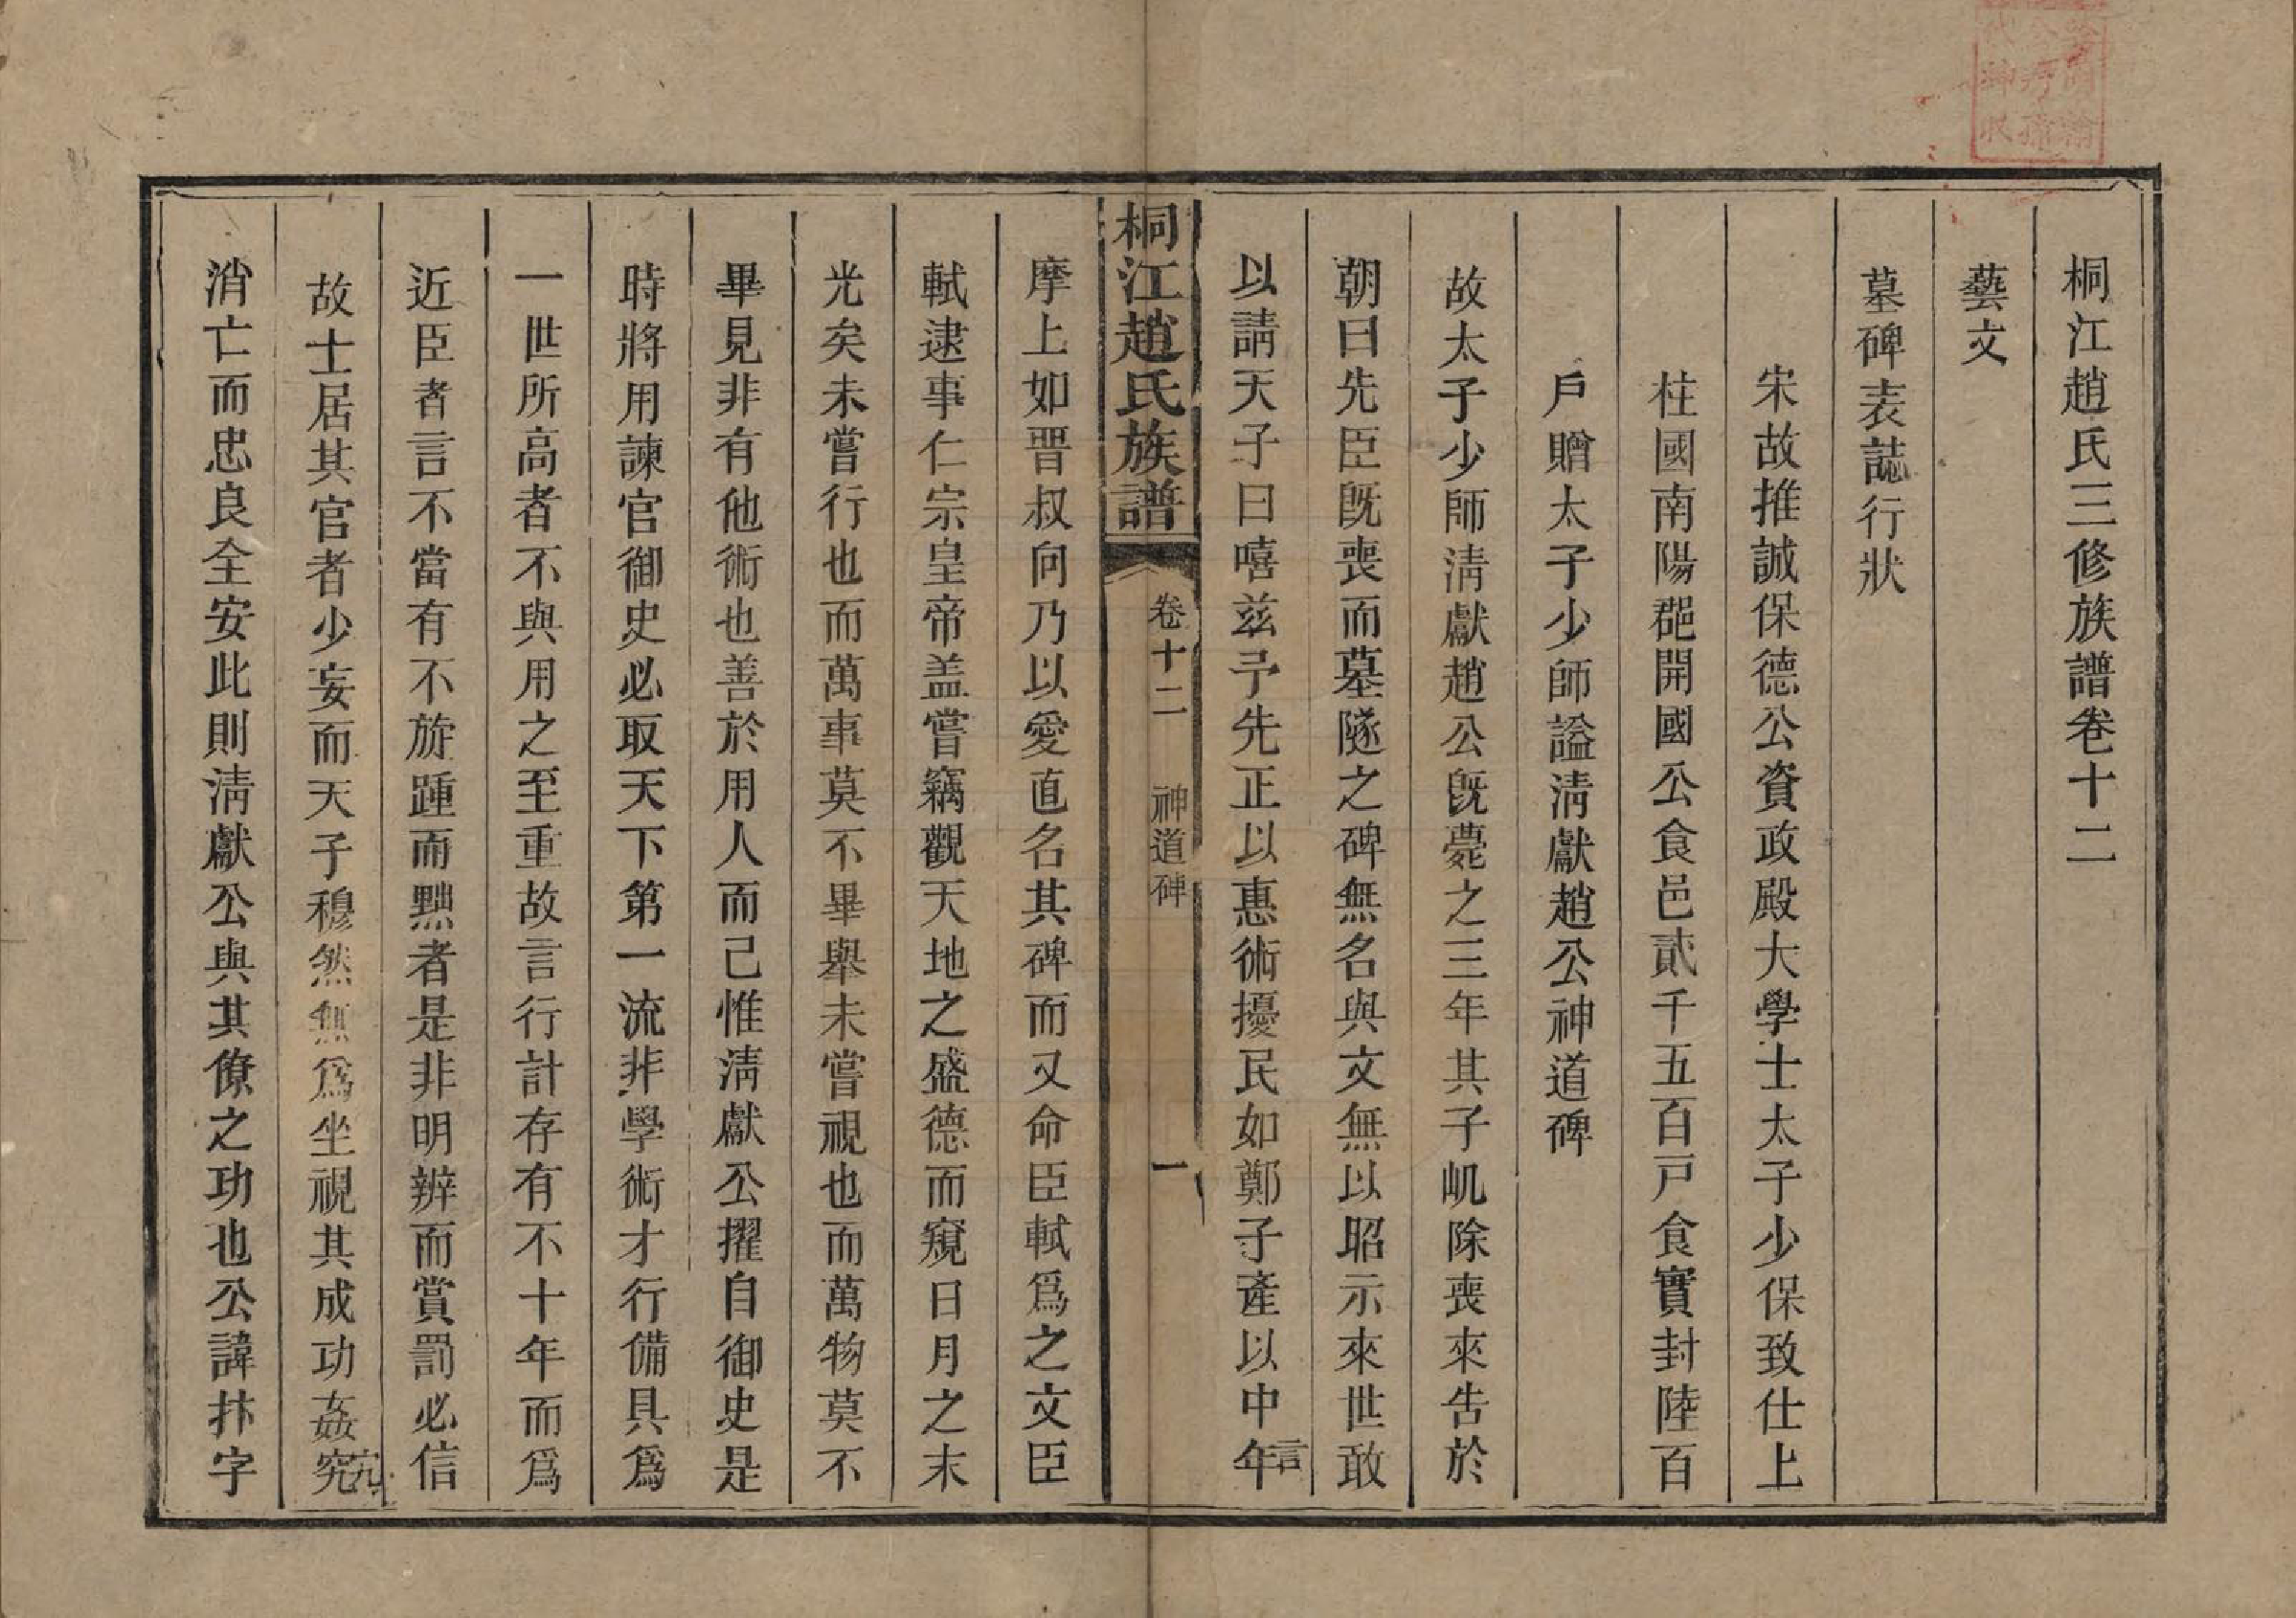 桐江趙氏三修族譜卷十二
藝文
墓碑表誌行狀
宋故推誠保德公資政殿大學士太子少保致仕上
柱國南陽郡開國公食邑貳千五百戸食實封陸百
戸贈太子少師謚淸獻趙公神道碑
故太子少師淸獻趙公旣薨之三年其子屼除喪來告於
朝曰先臣旣喪而墓隧之碑無名與文無以昭示來世敢
以請天子曰嘻茲予先正以惠術擾民如鄭子產以中年
言
桐江趙氏族譜
卷十二 神道碑 一
摩上如晋叔向乃以愛直名其碑而又命臣軾爲之文臣
軾逮事仁宗皇帝盖嘗竊觀天地之盛德而窺日月之末
光矣未嘗行也而萬事莫不畢舉未嘗視也而萬物莫不
畢見非有他術也善於用人而己惟淸獻公擢自御史是
時將用諫官御史必取天下第一流非學術才行備具爲
一世所高者不與用之至重故言行計存有不十年而爲
近臣者言不當有不旋踵而黜者是非明辨而賞罰必信
故士居其官者少妄而天子穆然無爲坐視其成功姦究
宄
消亡而忠良全安此則淸獻公與其僚之功也公諱抃字